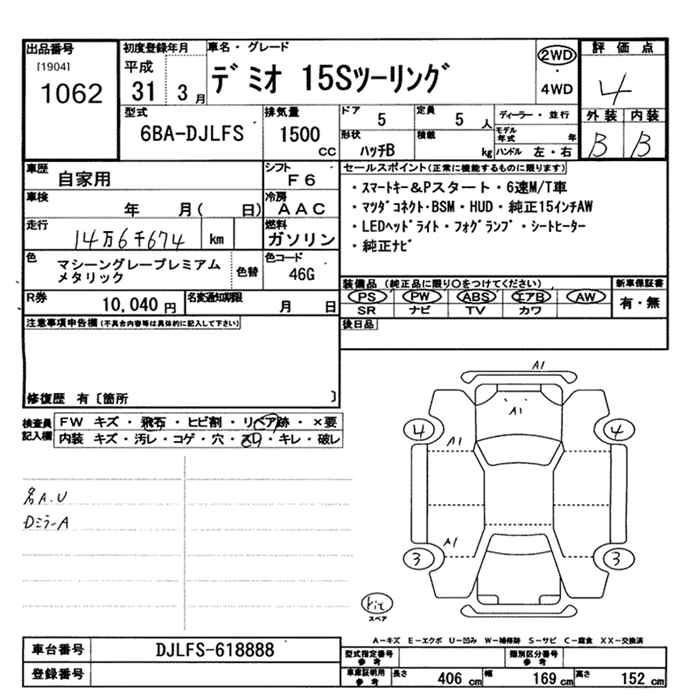 出品番号
[1904]
1062
初度登録年月
平成
31 3月
車名・グレード
デミオ 15Sツーリング
2WD
・
4WD
評価点
4
外装 内装
B B
型式
6BA-DJLFS
排気量
1500
CC
ドア
5
定員
5 人
形状
ハッチB
積載
kg
ディーラー・並行
モデル年式 年
ハンドル 左・右
車歴
自家用
シフト
F6
車検
年 月( 日)
冷房
AAC
走行
14万6千674 km
燃料
ガソリン
色
マシーングレープレミアム
メタリック
色替
色コード
46G
R券
10,040 円
名変通知期限
月 日
セールスポイント(正常に機能するものに限ります)
・スマートキー&Pスタート・6速M/T車
・マツダコネクト・BSM・HUD・純正15インチAW
・LEDヘッドライト・フォグランプ・シートヒーター
・純正ナビ
装備品(純正品に限り○をつけてください)
PS PW ABS エアB AW
SR ナビ TV カワ
新車保証書
有・無
後日品
注意事項申告欄(不具合内容等は具体的に記入して下さい)
修復歴 有〔箇所 〕
検査員
記入欄
FW キズ・飛石・ヒビ割・リペア跡・×要
内装 キズ・汚レ・コゲ・穴・スレ・キレ・破レ
各A.U
DミラーA
A1
A1
4 A1 4
3 A1 3
スペア
A-キズ E-エクボ U-凹み W-補修跡 S-サビ C-腐食 XX-交換済
車台番号
DJLFS-618888
登録番号
型式指定番号
参考
類別区分番号
参考
車庫証明用
参考
長さ 406 cm 幅 169 cm 高さ 152 cm